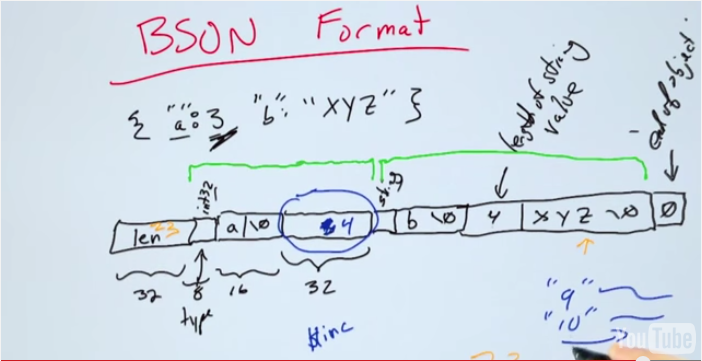 BSON Format
{ "a": 3, "b": "XYZ" }
length of string
value
end of object
int32
string
len 23
a \0
4
b \0
4
X Y Z \0
0
32
8
16
32
type
$inc
"9"
"10"
23
YouTube